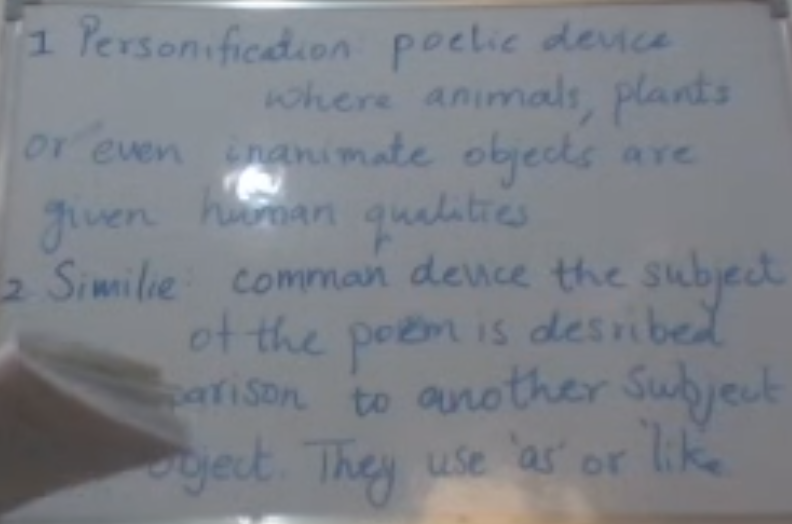 1 Personification: poetic device
where animals, plants
or even inanimate objects are
given human qualities
2 Similie: comman device the subject
of the poem is desribed
parison to another Subject
object. They use 'as' or 'like